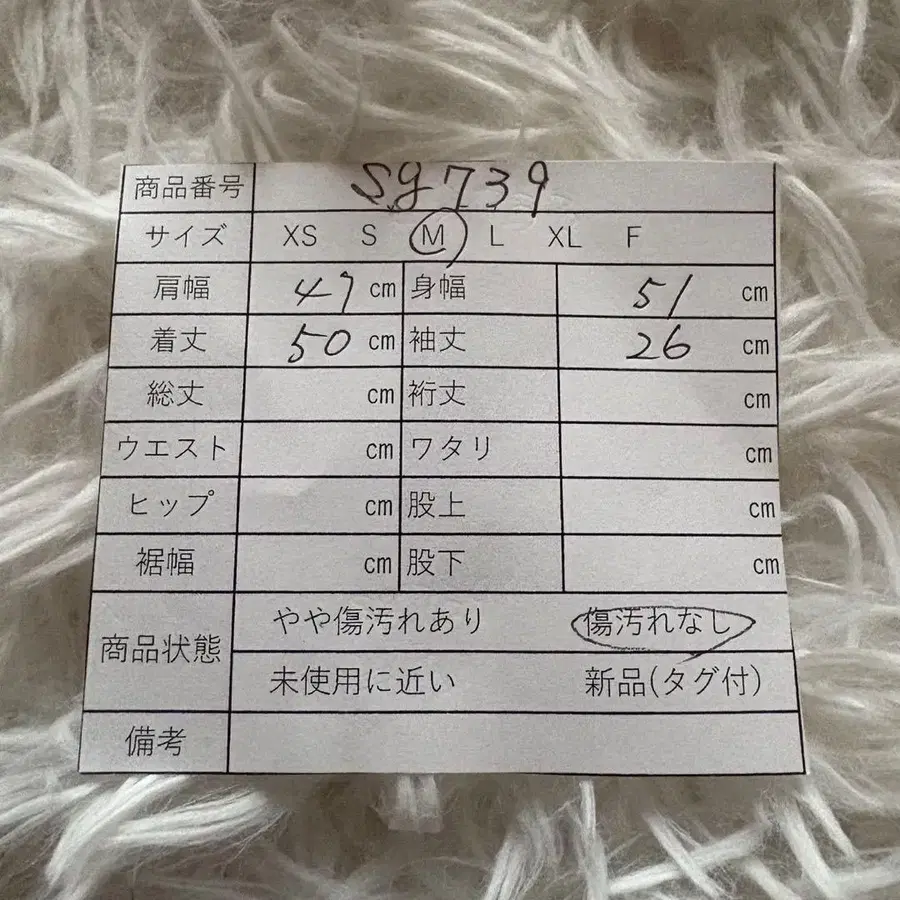 商品番号 sg739
サイズ XS S M L XL F
肩幅 47 cm 身幅 51 cm
着丈 50 cm 袖丈 26 cm
総丈 cm 裄丈 cm
ウエスト cm ワタリ cm
ヒップ cm 股上 cm
裾幅 cm 股下 cm
商品状態
やや傷汚れあり 傷汚れなし
未使用に近い 新品(タグ付)
備考